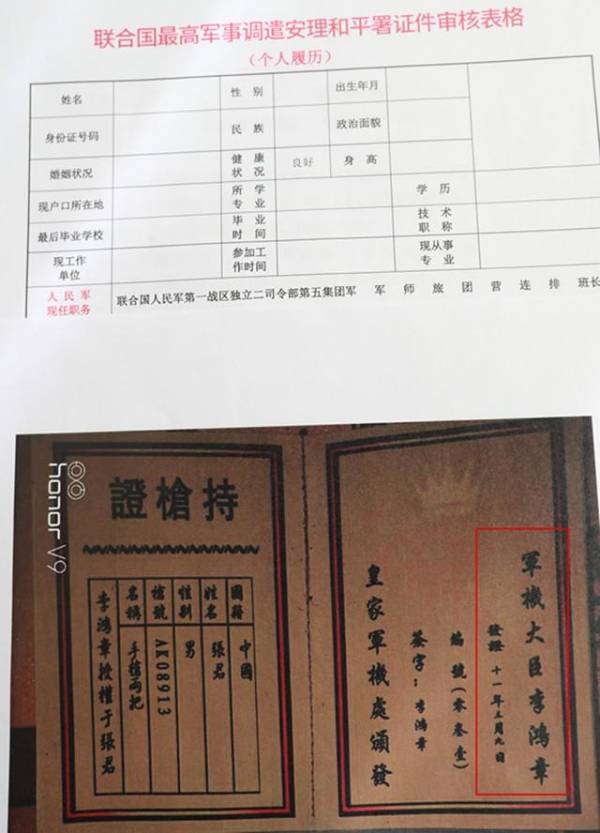 联合国最高军事调遣安理和平署证件审核表格
（个人履历）
姓名 性别 出生年月
身份证号码 民族 政治面貌
婚姻状况 健康状况 良好 身高
现户口所在地 所学专业 学历
最后毕业学校 毕业时间 技术职称
现工作单位 参加工作时间 现从事专业
人民军现任职务 联合国人民军第一战区独立二司令部第五集团军 军 师 旅 团 营 连 排 班长
honor V9
證槍持
國籍 中國
姓名 張君
性別 男
槍號 AK08913
名稱 手槍兩把
李鴻章授權于張君
軍機大臣李鴻章
發證 十一年三月九日
編號（零叁壹）
簽字：李鴻章
皇家軍機處頒發